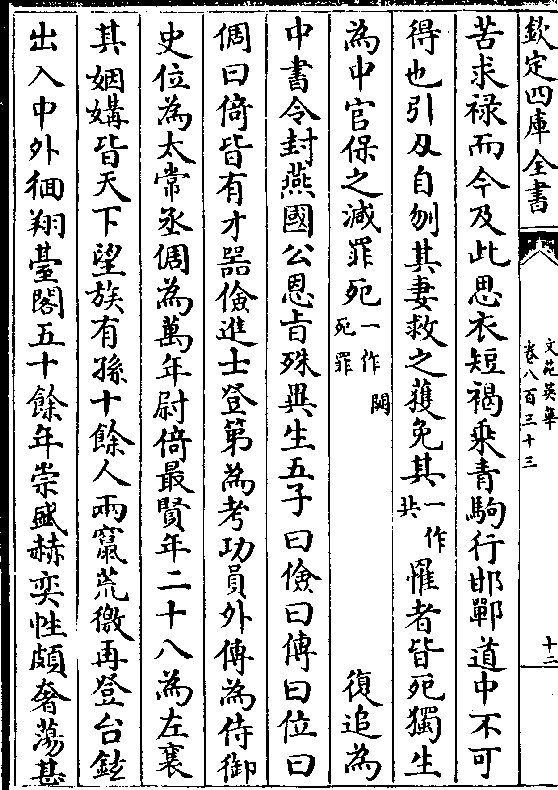 欽定四庫全書
文苑英華
卷八百三十三
十二
苦求禄而今及此思衣短褐乗青駒行邯鄲道中不可
得也引刄自刎其妻救之獲免其一作共罹者皆死獨生
為中官保之減罪死一作死罪闕復追為
中書令封燕國公恩㫖殊異生五子曰儉曰傳曰位曰
倜曰倚皆有才器儉進士登第為考功員外傳為侍御
史位為太常丞倜為萬年尉倚最賢年二十八為左襄
其姻媾皆天下望族有孫十餘人兩竄荒徼再登台鉉
出入中外徊翔臺閣五十餘年崇盛赫奕性頗奢蕩甚